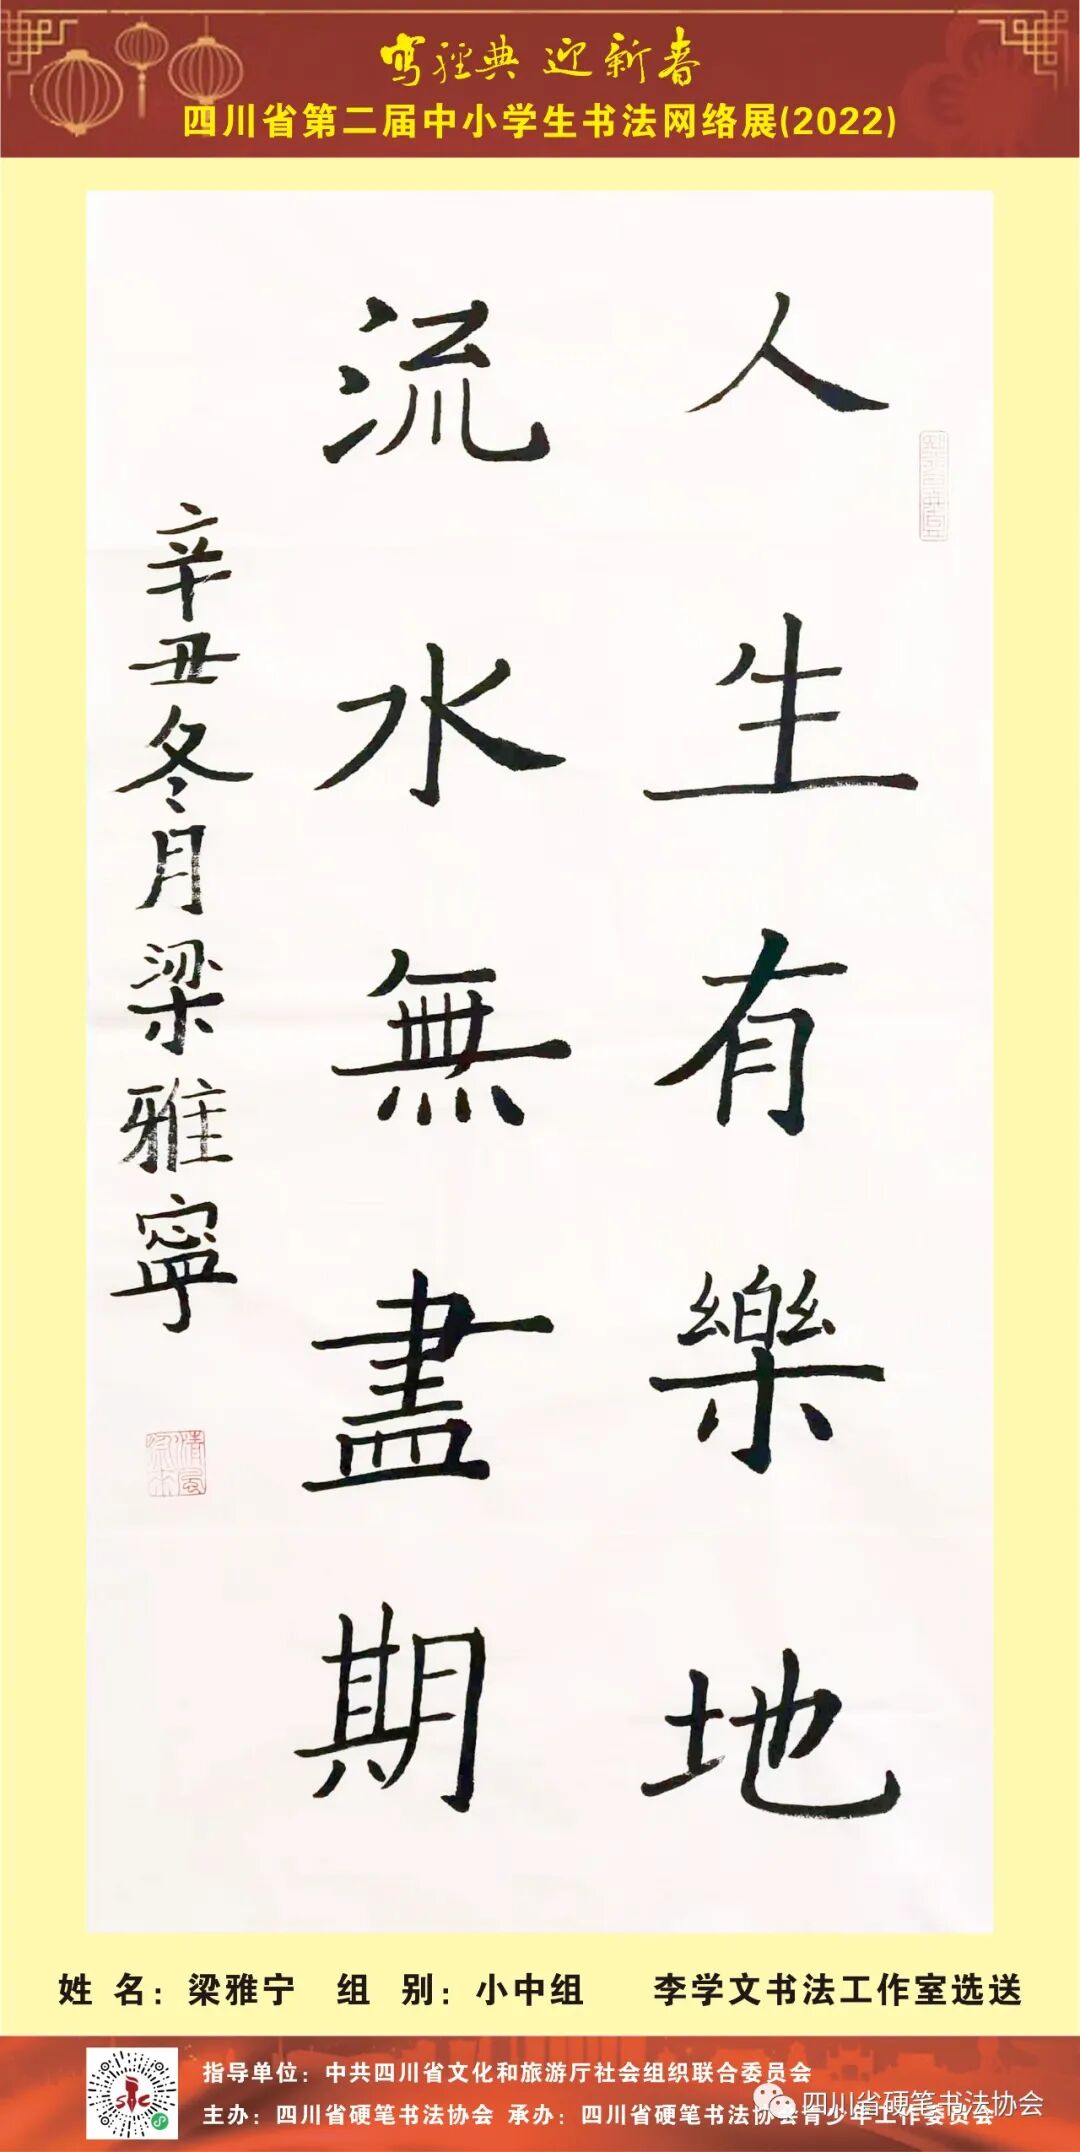 写经典 迎新春
四川省第二届中小学生书法网络展(2022)
人生有樂地
流水無盡期
辛丑冬月梁雅寧
姓 名：梁雅宁 组 别：小中组 李学文书法工作室选送
指导单位：中共四川省文化和旅游厅社会组织联合委员会
主办：四川省硬笔书法协会 承办：四川省硬笔书法协会青少年工作委员会
四川省硬笔书法协会